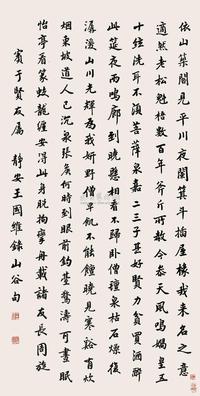 依山築閣見平川夜闌箕斗插屋椽我來名之意
適然老松魁梧數百年斧斤所赦今參天風鳴媧皇五
十弦洗耳不須菩薩泉嘉二三子甚好賢力貧買酒醉
此筵夜雨鳴廊到曉懸相看不歸卧僧氈泉枯石燥復
潺湲山川光輝為我妍野僧早飢不能饘曉見寒谿有炊
煙東坡道人已沉泉張侯何時到眼前釣臺驚濤可晝眠
怡亭看篆蛟龍纏安得此身脫拘攣舟載諸友長周旋
賓于賢友屬 靜安王國維錄山谷句